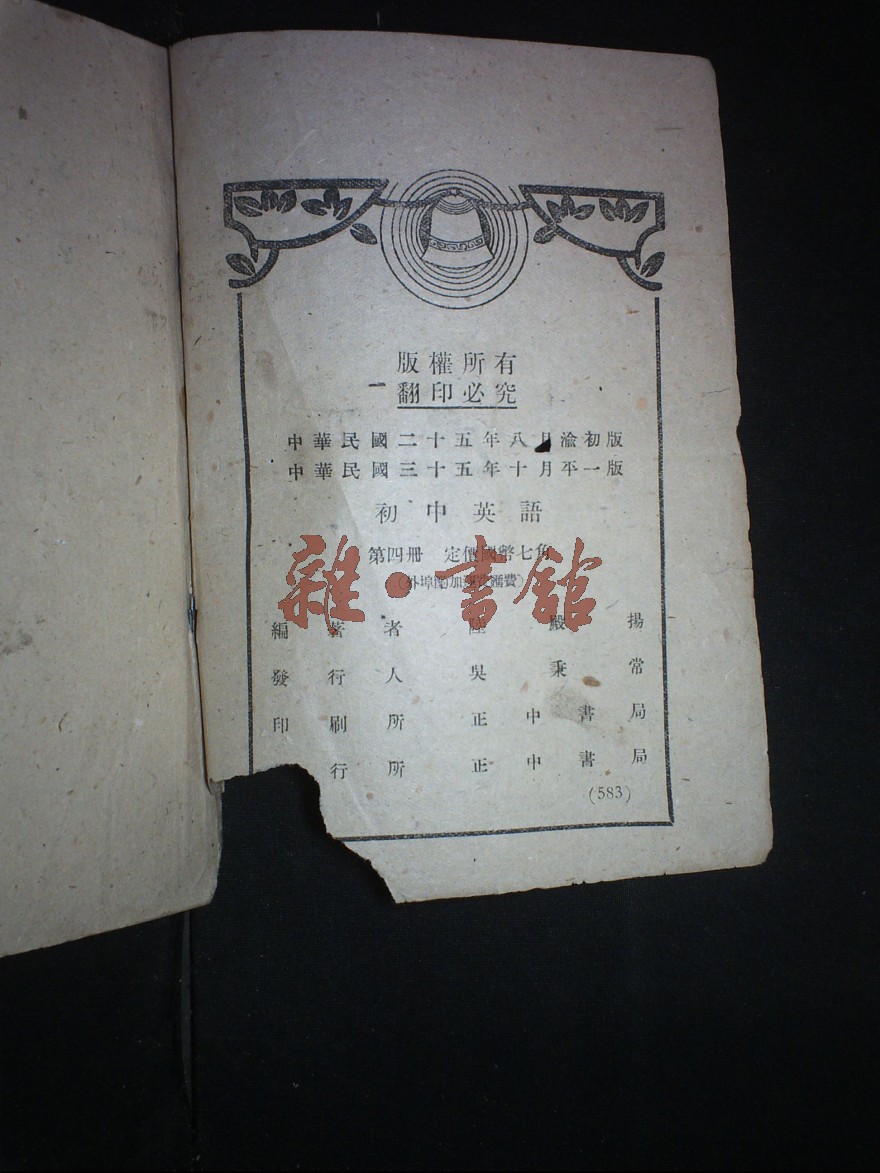 版權所有
翻印必究
中華民國二十五年八月渝初版
中華民國三十五年十月平一版
初中英語
第四册 定價國幣七角
(外埠酌加運費匯費)
雜·書館
編著者 陸殿揚
發行人 吳秉常
印刷所 正中書局
行所 正中書局
(583)